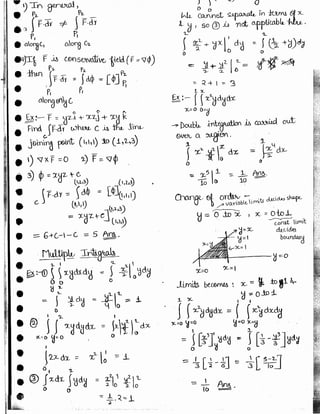 1) In general,
P₂ P₂
∫ F·dr ≠ ∫ F·dr
P₁ P₁
along C₁ along C₂
2) If F is conservative field (F = ∇φ)
then
P₂ P₂
∫ F·dr = ∫ dφ = [φ]
P₁ P₁
along any C
Ex:- F = yz i + xz j + xy k
Find ∫ F·dr where C is the line
joining point (1,1,1) to (1,2,3)
1) ∇×F = 0 2) F = ∇φ
3) φ = xyz + c
∫ F·dr = ∫ dφ = [φ]
(1,1,1)
= xyz + c
= 6+c-1-c = 5 Ans.
Multiple Integrals
Ex:- ① ∫∫ xy dx dy = ∫ x²/2 | y dy
= ∫ y/2 dy = y²/4 | = 1
② ∫∫ xy dy dx
x=0 y=0
∫ 2x dx = x² | = 1
③ ∫ x dx ∫ y dy = x²/2 | y²/2 |
= 1/2 · 2 = 1
We cannot separate in terms of x
& y, so ③ is not applicable here.
= 2 + 1 = 3
Ex:- ∫∫ x² y dy dx
x=0 0=y
→ Double integration is carried out
over a region.
∫ x² y²/2 | dx = ∫ x⁴/2 dx
= x⁵/10 | = 1/10 Ans.
Change of order →
variable limits decides shape
y = 0 to x , x = 0 to 1
const limit
decides
boundary
y=x
x=y
x=1
y=0
x=0 x=1
limits becomes : x = y to 1
y = 0 to 1
∫∫ x² y dy dx = ∫∫ x² y dx dy
x=0 y=0 y=0 x=y
= ∫ [x³/3] y dy = ∫ [1/3 - y³/3] y dy
= 1/3 [1/2 - 1/5] = 1/3 [5-2/10]
= 1/10 Ans.